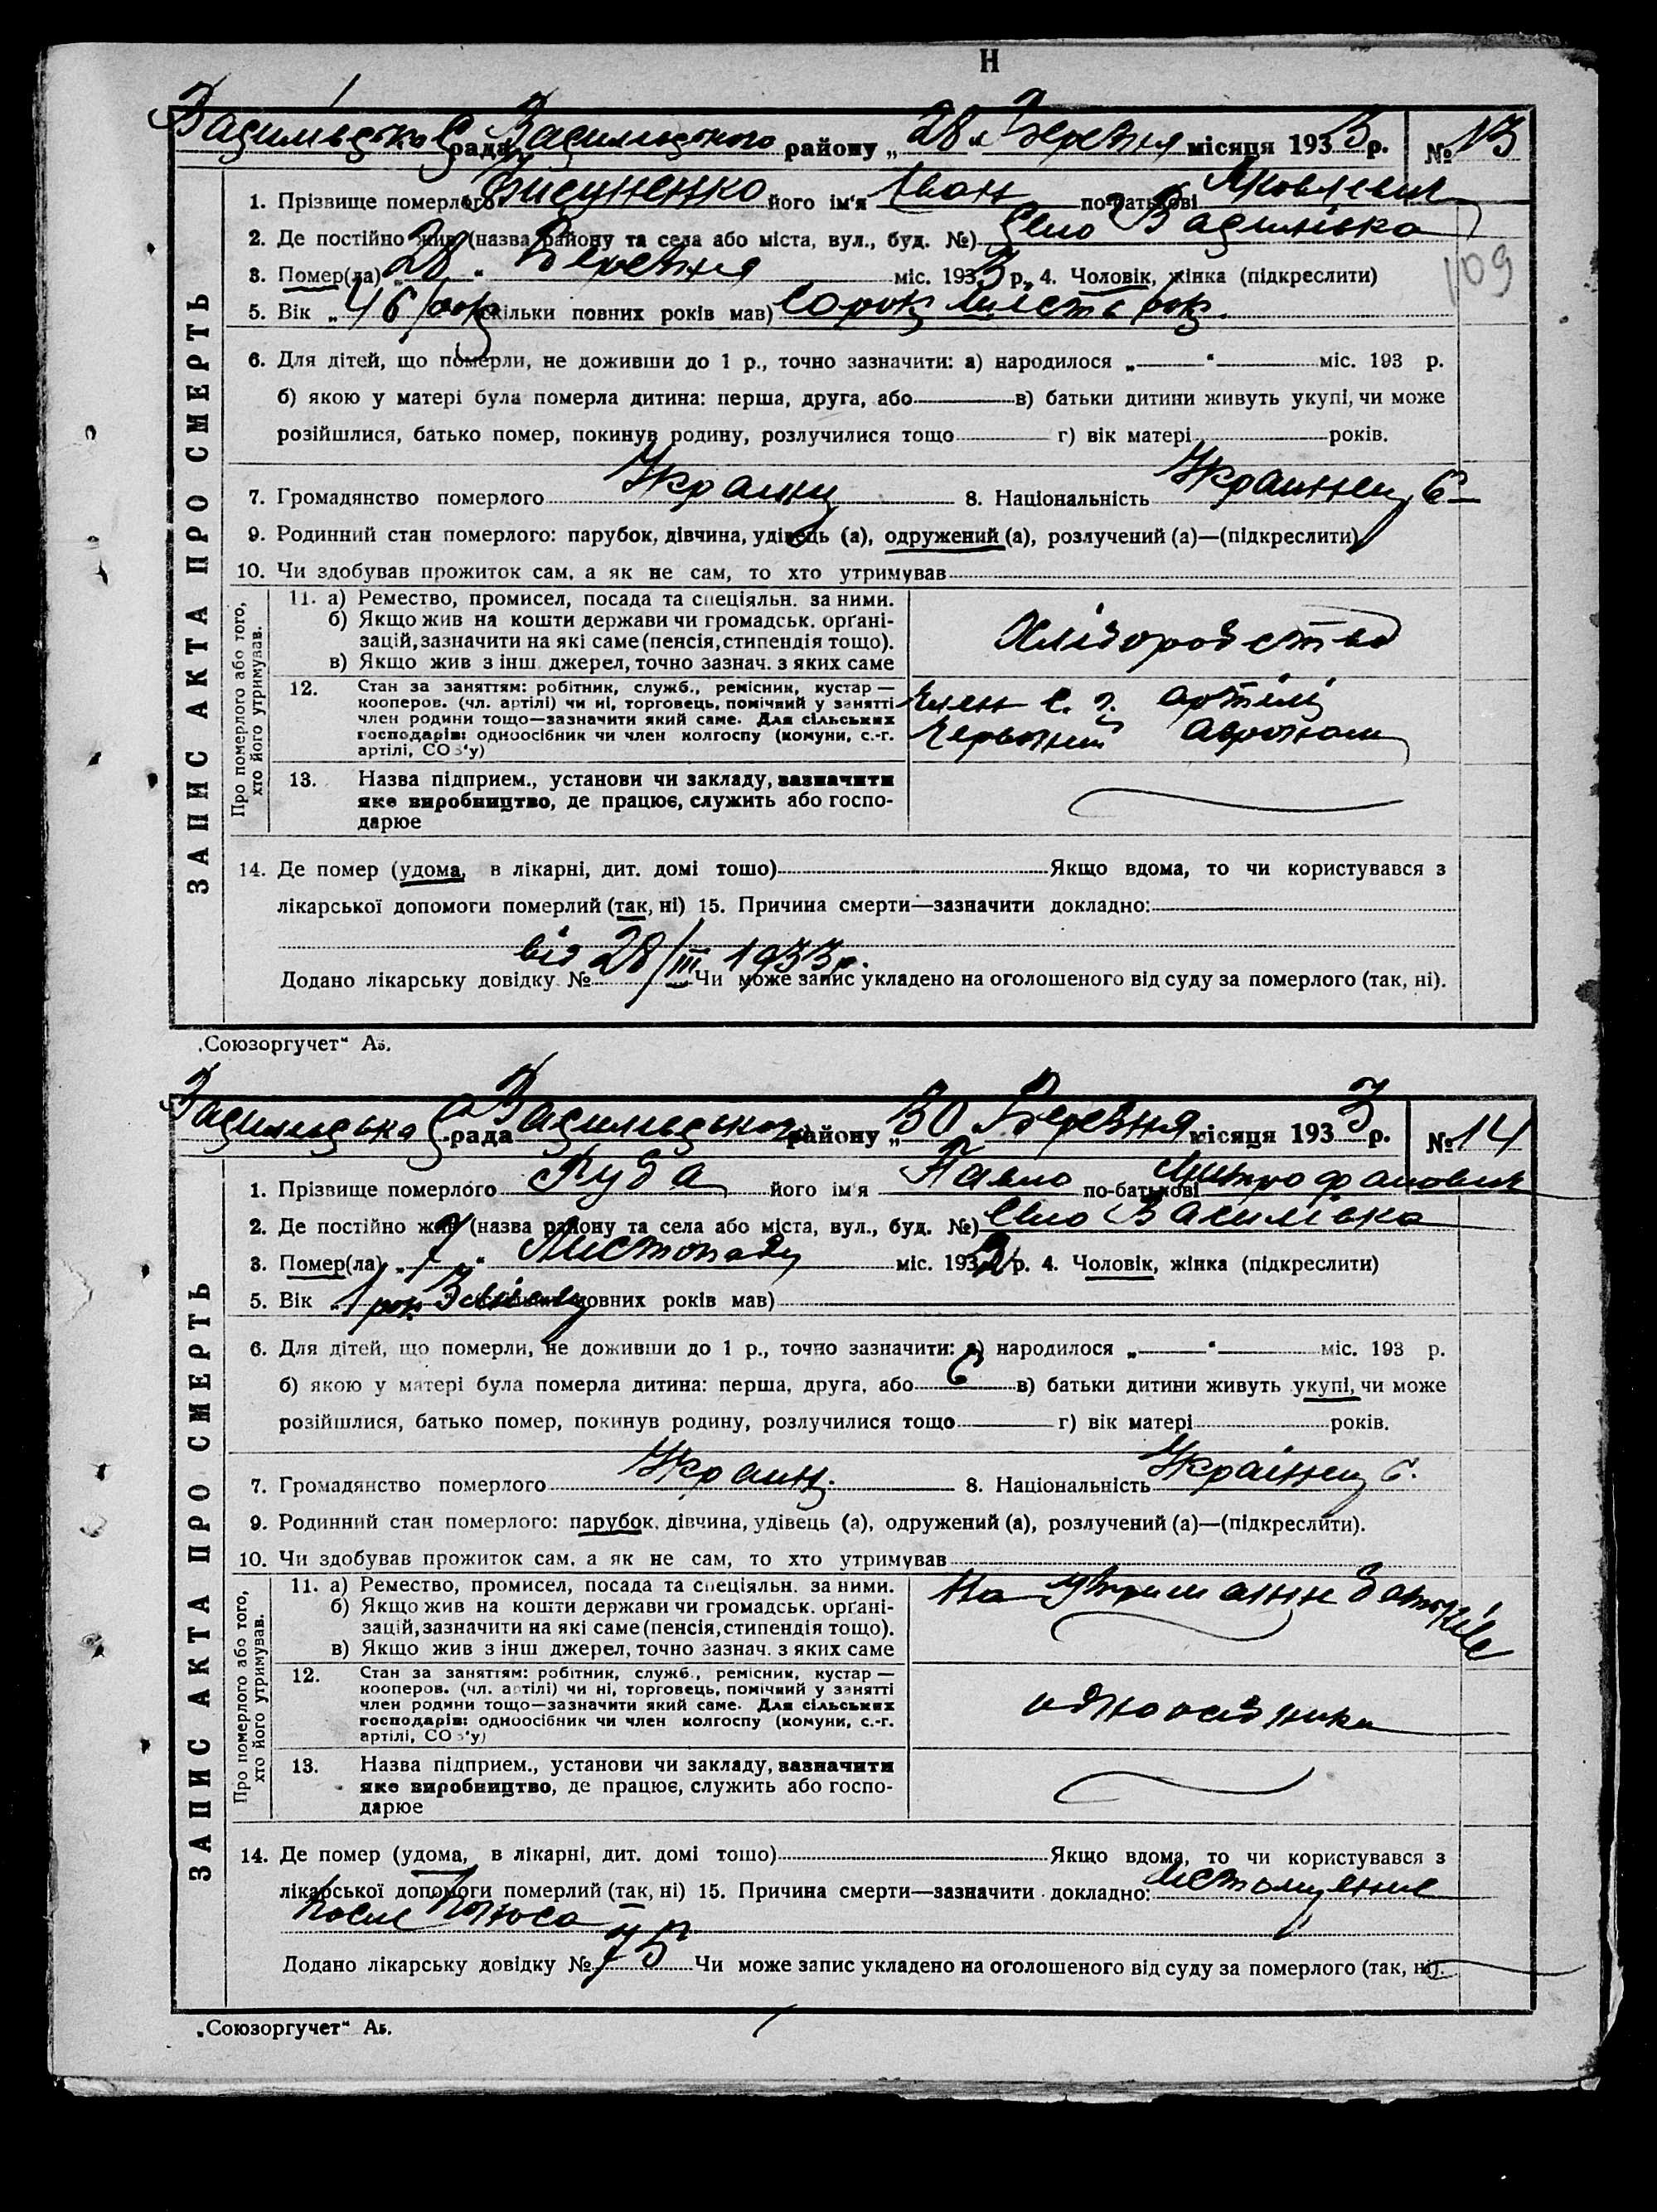 Н
Василівська С. рада Василівського району „28“ Березня місяця 1933 р. № 13
1. Прізвище померлого його ім'я Іван по-батькові Яковлевич
2. Де постійно жив (назва району та села або міста, вул., буд. №) Село Василівка
3. Помер(ла) „28“ Березня міс. 1933 р. 4. Чоловік, жінка (підкреслити)
109
5. Вік „46 рок (скільки повних років мав) Сорок шість рок.
6. Для дітей, що померли, не доживши до 1 р., точно зазначити: а) народилося „ “ міс. 193 р.
б) якою у матері була померла дитина: перша, друга, або в) батьки дитини живуть укупі, чи може
розійшлися, батько помер, покинув родину, розлучилися тощо г) вік матері років.
7. Громадянство померлого Украинц 8. Національність Украинец
9. Родинний стан померлого: парубок, дівчина, удівець (а), одружений (а), розлучений (а)—(підкреслити)
10. Чи здобував прожиток сам, а як не сам, то хто утримував
11. а) Ремество, промисел, посада та спеціяльн. за ними.
б) Якщо жив на кошти держави чи громадськ. орґані-
зацій, зазначити на які саме (пенсія, стипендія тощо).
в) Якщо жив з інш. джерел, точно зазнач. з яких саме
Хліборобство
12. Стан за заняттям: робітник, служб., ремісник, кустар —
кооперов. (чл. артілі) чи ні, торговець, помічний у занятті
член родини тощо—зазначити який саме. Для сільських
господарів: одноосібник чи член колгоспу (комуни, с.-г.
артілі, СОЗ'у)
Член с. г. артілі
Червоний Агроном
13. Назва підприєм., установи чи закладу, зазначити
яке виробництво, де працює, служить або госпо-
дарює
Про померлого або того,
хто його утримував.
ЗАПИС АКТА ПРО СМЕРТЬ
14. Де помер (удома, в лікарні, дит. домі тощо) Якщо вдома, то чи користувався з
лікарської допомоги померлий (так, ні) 15. Причина смерти—зазначити докладно:
від 28/III 1933 р.
Додано лікарську довідку № Чи може запис укладено на оголошеного від суду за померлого (так, ні).
„Союзоргучет“ Аз.
Василівська С. рада Василівського району „30 Березня місяця 1933 р. № 14
1. Прізвище померлого Руба його ім'я Павло по-батькові Митрофанович
2. Де постійно жив (назва району та села або міста, вул., буд. №) Село Василівка
3. Помер(ла) „7“ Листопаду міс. 1932 р. 4. Чоловік, жінка (підкреслити)
5. Вік „1 рок 3 місяц повних років мав)
6. Для дітей, що померли, не доживши до 1 р., точно зазначити: а) народилося „ “ міс. 193 р.
б) якою у матері була померла дитина: перша, друга, або 6 в) батьки дитини живуть укупі, чи може
розійшлися, батько помер, покинув родину, розлучилися тощо г) вік матері років.
7. Громадянство померлого Украинц. 8. Національність Українец
9. Родинний стан померлого: парубок, дівчина, удівець (а), одружений (а), розлучений (а)—(підкреслити).
10. Чи здобував прожиток сам, а як не сам, то хто утримував
11. а) Ремество, промисел, посада та спеціяльн. за ними.
б) Якщо жив на кошти держави чи громадськ. орґані-
зацій, зазначити на які саме (пенсія, стипендія тощо).
в) Якщо жив з інш джерел, точно зазнач. з яких саме
На утриманні батьків
12. Стан за заняттям: робітник, служб., ремісник, кустар —
кооперов. (чл. артілі) чи ні, торговець, помічний у занятті
член родини тощо—зазначити який саме. Для сільських
господарів: одноосібник чи член колгоспу (комуни, с.-г.
артілі, СОЗ'у)
одноосібника
13. Назва підприєм., установи чи закладу, зазначити
яке виробництво, де працює, служить або госпо-
дарює
Про померлого або того,
хто його утримував.
ЗАПИС АКТА ПРО СМЕРТЬ
14. Де помер (удома, в лікарні, дит. домі тощо) Якщо вдома, то чи користувався з
лікарської допомоги померлий (так, ні) 15. Причина смерти—зазначити докладно: Истощение
после Поноса
Додано лікарську довідку № 75 Чи може запис укладено на оголошеного від суду за померлого (так, ні).
„Союзоргучет“ Аз.